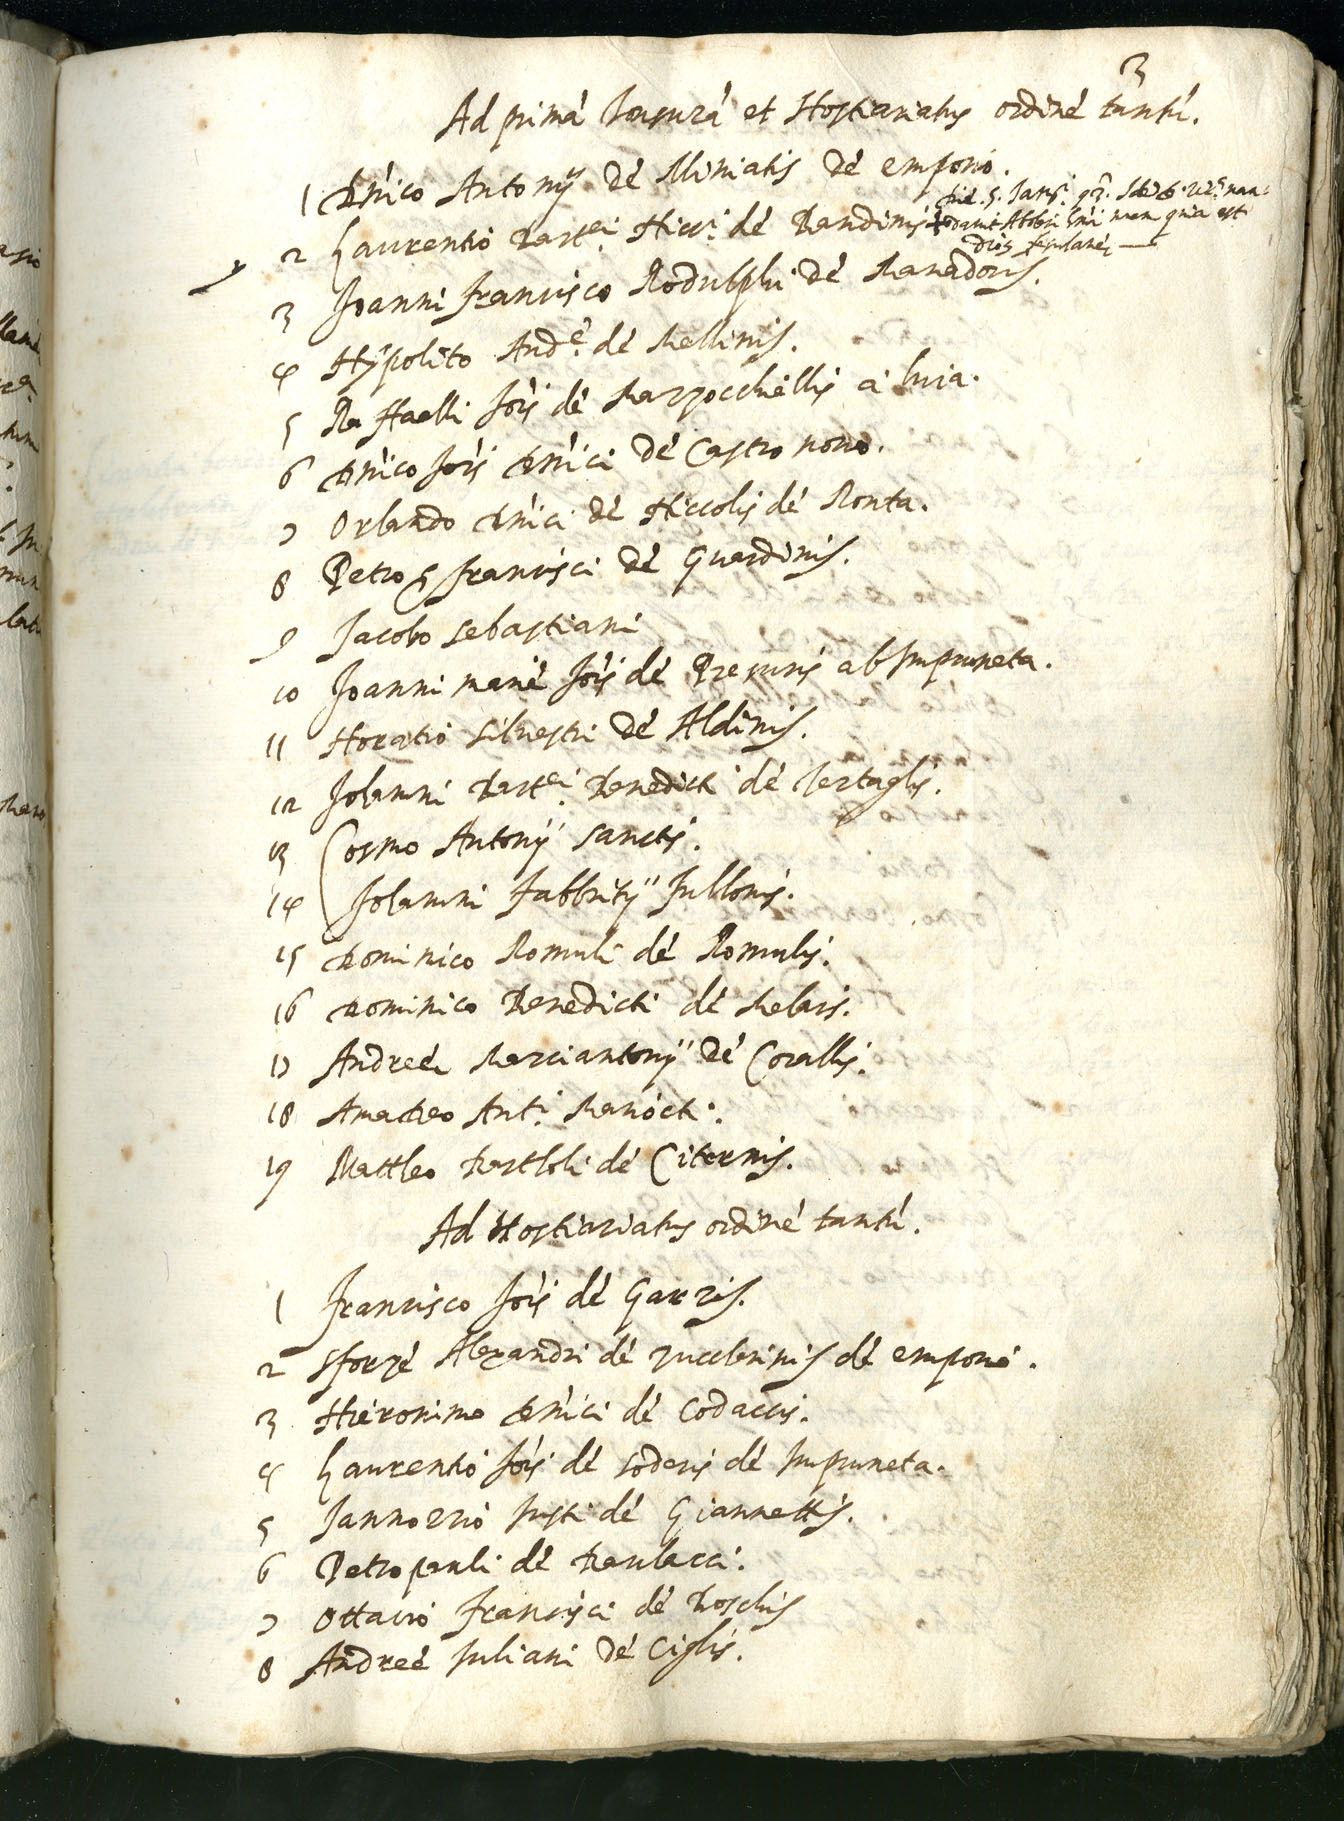 3
Ad primā tonsurā et Hostiariatus ordinē tantū.
1 Dn̄ico Antonij de Miniatis de emporio.
2 Laurentio Bart.ei Nicc.i de Bandinis
die 5.
quia est
3 Joanni francisco Rodulphi de
4 Hypolito And.e de Mellinis.
5 Raffaelli Jōis de Marzocchiellis a
6 Dn̄ico Jōis Dn̄ici de Castro novo.
7 Orlando Dn̄ici de Niccolis de Ronta.
8 Petro francisci de Guardinis.
9 Jacobo sebastiani
10 Joanni marie Jōis de ab Impruneta.
11 Horatio silvestri de Aldinis.
12 Johanni Bart.ei Benedicti de
13 Cosmo Antonij sanctis.
14 Johanni fabbritij fullonis.
15 Dominico Romuli de Romulis.
16 Dominico Benedicti de
17 Andreae Marciantonij de Corallis.
18 Amadeo Ant.i
19 Mattheo Bartholi de Citernis.
Ad Hostiariatus ordinē tantū.
1 francisco Jōis de Garzis.
2 sforzē Alexandri de zuccherinis de emporio.
3 Hieronimo Dn̄ici de Codaccis.
4 Laurentio Jōis de soderis de Impruneta.
5 Iannozzio Iusti de Giannettis.
6 Petro pauli de
7 Ottavio francisci de Boschis
8 Andreē Iuliani de Ciglis.